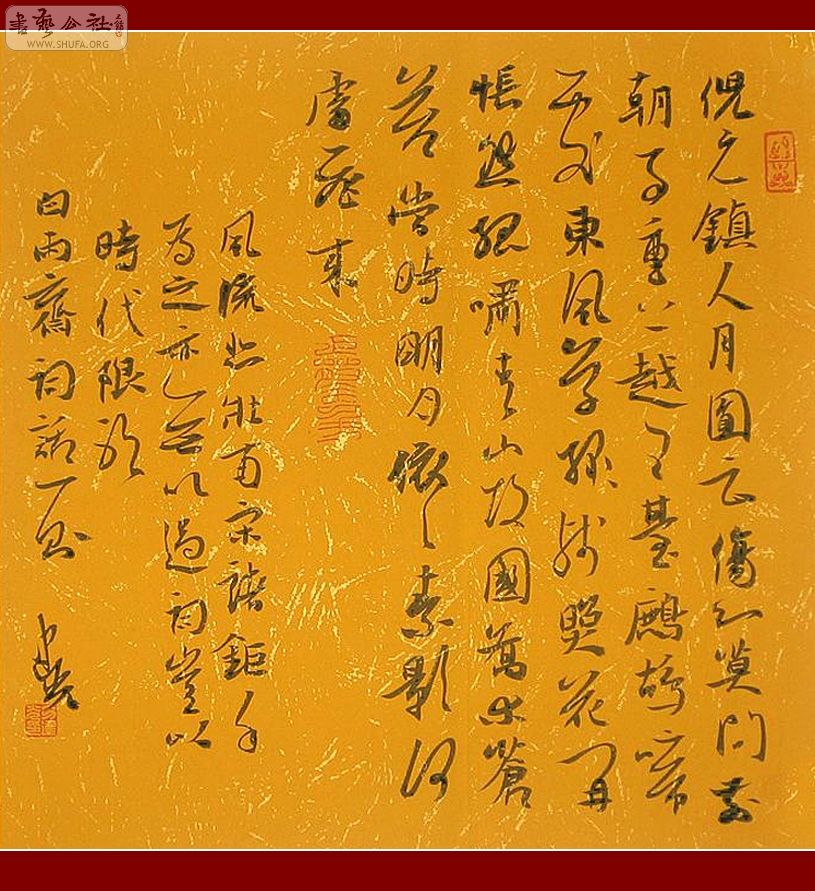 書藝公社
WWW.SHUFA.ORG
倪元鎮人月圓云傷心莫問前
朝事重上越王臺鷓鴣啼
處東風草綠殘照花開
悵然孤嘯青山故國喬木蒼
苔當時明月依〻素影何
處飛來
風流悲壯南宋諸鉅手
為之亦無以過詞豈以
時代限耶
白雨齋詞話一則